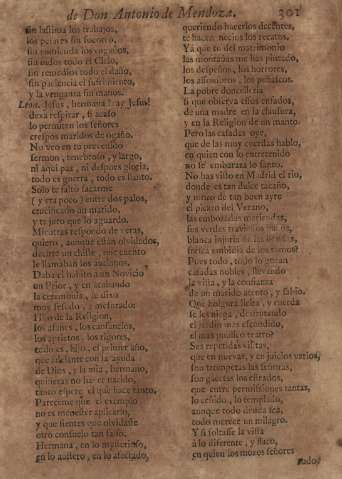 de Don Antonio de Mendoza. 301
sin lastima los trabajos,
los pesares sin socorro,
sin enmienda los engaños,
sin oidos todo el Cielo,
sin remedios todo el daño,
sin paciencia el sufrimiento,
y la vengança sin manos.
Leon. Jesus, hermana! ay Jesus!
dexa respirar, si acaso
lo permiten los señores
crespos maridos de ogaño.
No veo en tu prevenido
sermon, tenebroso, y largo,
ni aqui paz, ni despues gloria,
todo es guerra, todo es llanto.
Solo te faltò sacarme
(y era poco) entre dos palos,
crucificado un marido,
y te juro que lo aguardo.
Mientras respondo de veras,
quiero, aunque estàn olvidados,
dezirte un chiste, mi cuento
le llamaban los ancianos.
Daba el habito a un Novicio
un Prior, y en acabando
la ceremonia, le dixo
muy sesudo, y mesurado:
Hijo de la Religion,
los afanes, los cansancios,
los aprietos, los rigores,
todo es, hijo, el primer año,
que adelante con la ayuda
de Dios, y la mia, hermano,
quisieras no haver nacido,
tanto espero el que hace tanto.
Pareceme que el exemplo
no es menester aplicarlo,
y que sientes que olvidasse
otro consuelo tan santo.
Hermana, en lo mysterioso,
en lo austero, en lo afectado,
queriendo hacerlos decentes,
te hacen necios los recatos.
Yà que tu del matrimonio
las montañas me has pintado,
los despeños, los horrores,
los assombros, los peñascos.
La pobre doncellería
si que observa essos enfados,
de una madre en la clausura,
y en la Religion de un manto.
Pero las casadas oye,
que de las muy cuerdas hablo,
en quien con lo entretenido
no se embaraza lo santo.
No has visto en Madrid el rio,
donde es tan dulce tacaño,
y minero de tan buen ayre
el picaro del Verano,
las embozadas meriendas,
sus verdes traviesos
blanca injuria de las
fresca embidia de los ramos?
Pues todo, todo lo gozan
casadas nobles, llevando
la vista, y la confianza
de un marido atento, y sabio.
Que holgura licita, y cuerda
se les niega, disfrutando
el jardin mas escondido,
el mas publico teatro?
Sus repetidas visitas,
que en nuevas, y en juicios varios,
son trompetas las señoras,
son gacetas los estrados,
que entre permissiones tantas,
lo ceñido, lo templado,
aunque todo diviersa,
todo merece un milagro.
Y si soltasse la vista
à lo diferente, y flaco,
en quien los mozos señores
todo